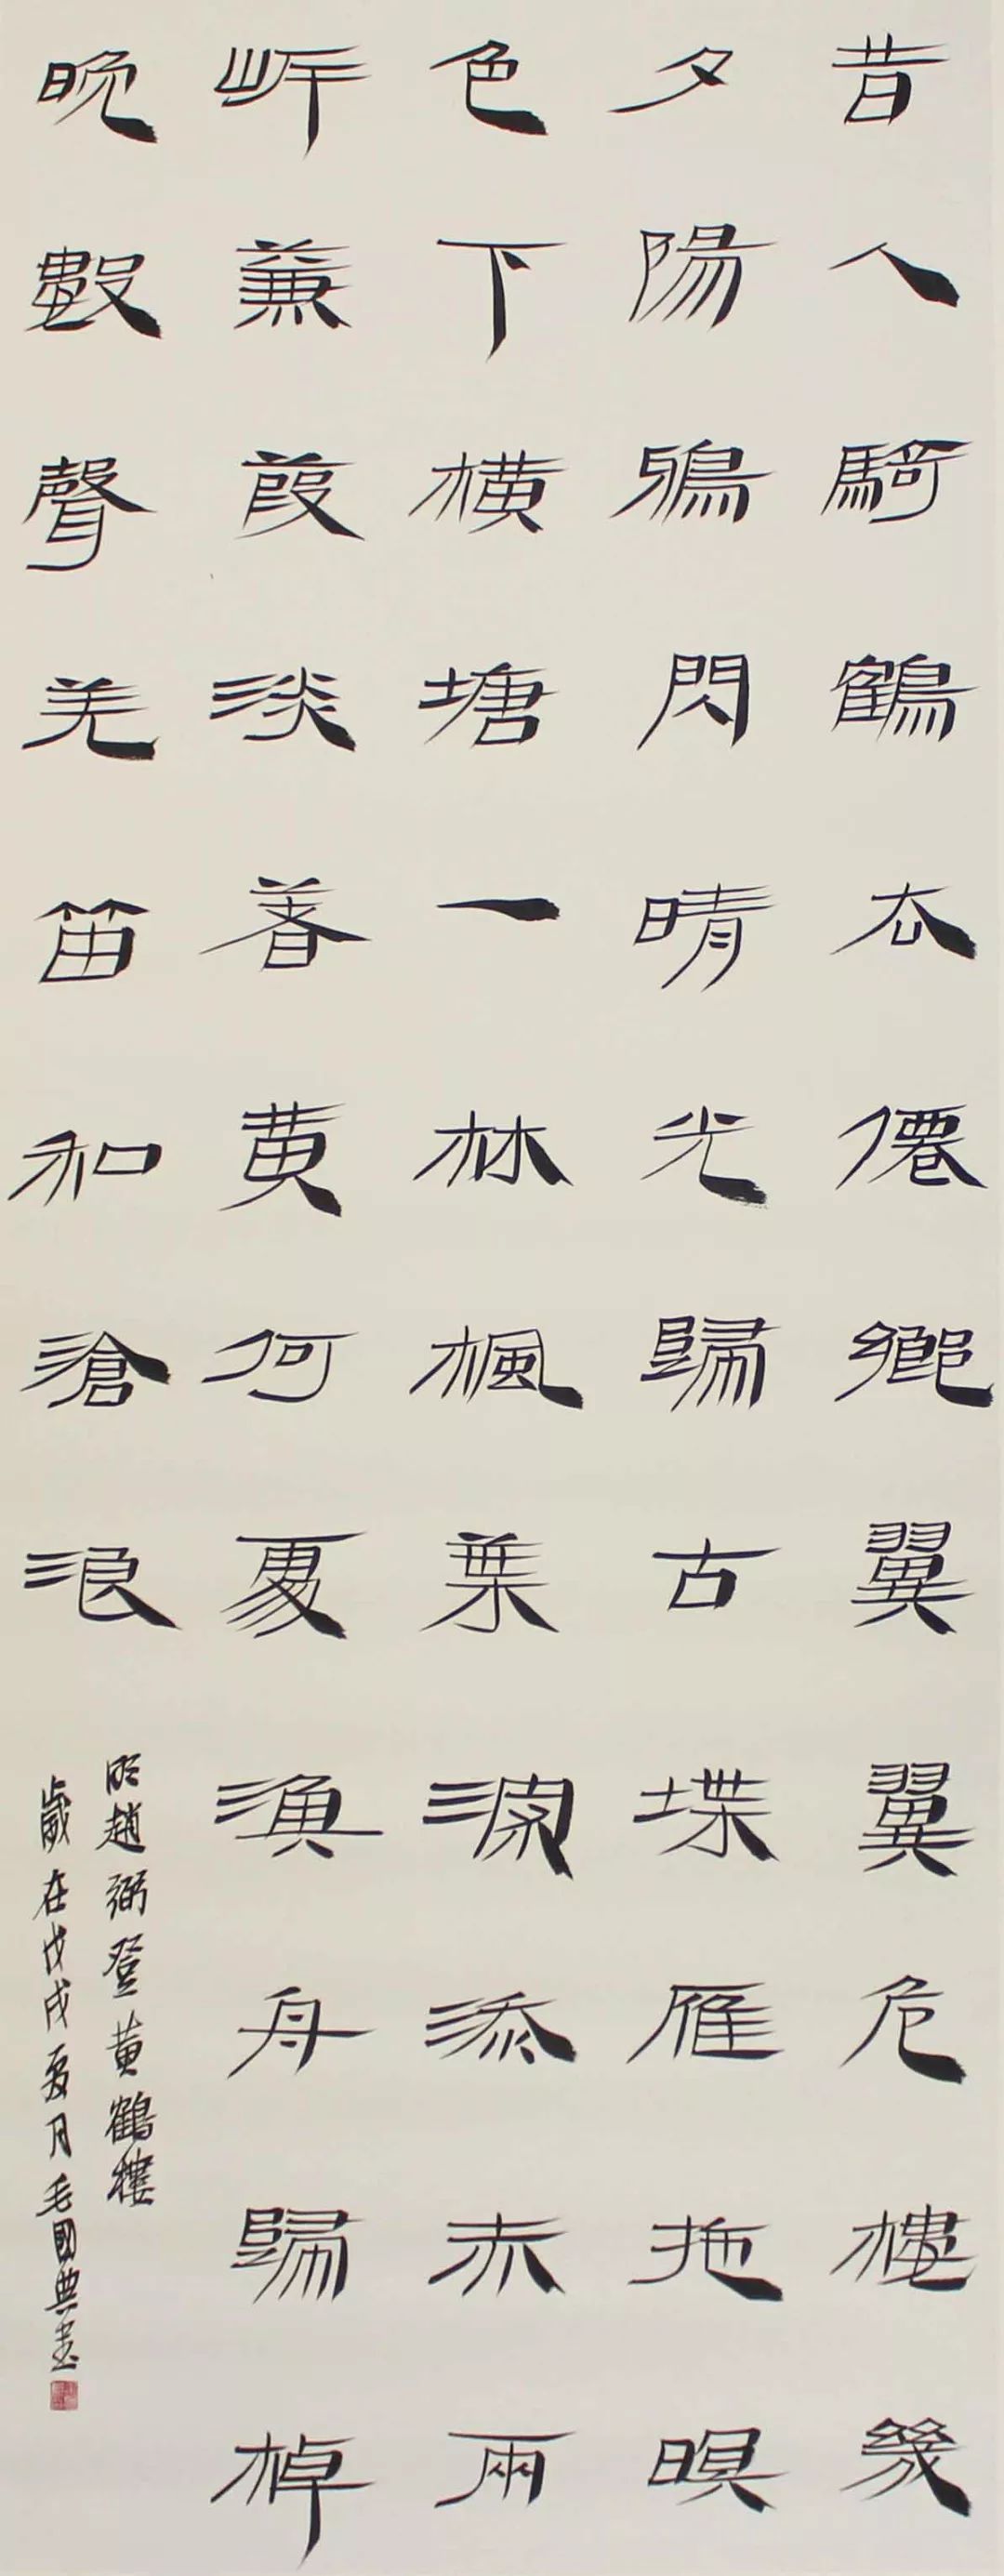 昔人騎鶴去僊鄉翼翼危樓幾
夕陽鴉閃晴光歸古堞雁拖暝
色下橫塘一林楓葉深添赤兩
岍蒹葭淡著黃何處漁舟歸棹
晚數聲羌笛和滄浪
明趙弼登黃鶴樓
歲在戊戌夏月毛國典書